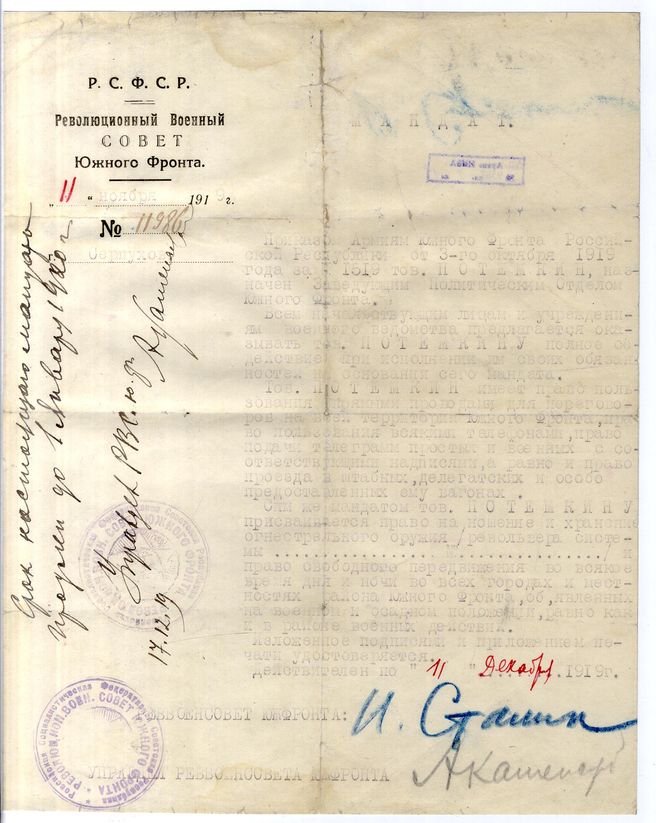 Р. С. Ф. С. Р.
Революционный Военный
СОВЕТ
Южного Фронта.
"11" ноября 1919 г.
№ 11986
Серпухов
МАНДАТ.
Приказом Армиям Южного Фронта Россий-
ской Республики от 3-го октября 1919
года за 1519 тов. ПОТЕМКИН, наз-
начен Заведующим Политическим Отделом
Южного Фронта.
Всем начальствующим лицам и учреждени-
ям военного ведомства предлагается ока-
зывать тов. ПОТЕМКИНУ полное со-
действие при исполнении им своих обязан-
ностей на основании сего мандата.
Тов. ПОТЕМКИН имеет право поль-
зования прямыми проводами для перегово-
ров на всей территории Южного Фронта, пра-
во пользования всякими телефонами, право
подачи телеграмм простых и военных с со-
ответствующими надписями, а равно и право
проезда в штабных, делегатских и особо
предоставленных ему вагонах.
Сим же мандатом тов. ПОТЕМКИНУ
присваивается право на ношение и хранение
огнестрельного оружия /револьвера систе-
мы / и
право свободного передвижения во всякое
время дня и ночи во всех городах и мест-
ностях района Южного Фронта, об,явленных
на военном и осадном положении, равно как
и в районе военных действий.
Изложенное подписями и приложением пе-
чати удостоверяется.
Действителен по "11" Декабря 1919г.
РЕВВОЕНСОВЕТ ЮЖФРОНТА:
И. Сталин
УПРАВДЕЛ РЕВВОЕНСОВЕТА ЮЖФРОНТА
Срок настоящего мандата
продлен до 1 Января 1920 г.
Управдел РВС Ю.ф.
17.12.19
Российская Социалистическая Федеративная Советская Республика
РЕВОЛЮЦИОН. ВОЕН. СОВЕТ ЮЖНОГО ФРОНТА